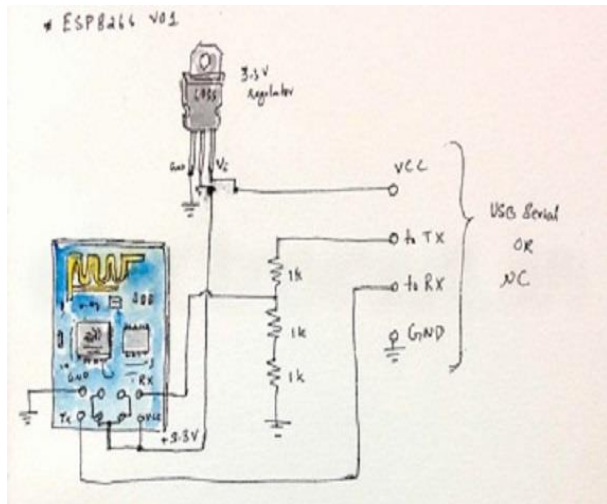 * ESP8266 V01
3.3V
Regulator
GND
Vi
VCC
to TX
to RX
GND
USB Serial
OR
NC
1k
1k
1k
GND
RX
Tx
VCC
+3.3V